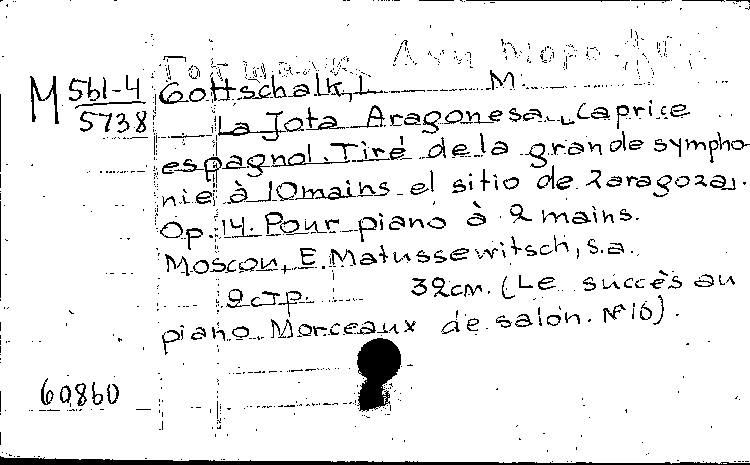 Готшалк, Луи Моро
M 561-4
5738
Gottschalk, L. M.
La Jota Aragonesa. Caprice
espagnol. Tiré de la grande sympho-
nie à 10 mains el sitio de Zaragoza.
Op. 14. Pour piano à 2 mains.
Moscou, E. Matussewitsch, s.a.
9 стр. 32cm. (Le succès au
piano. Morceaux de salon. № 16).
60860